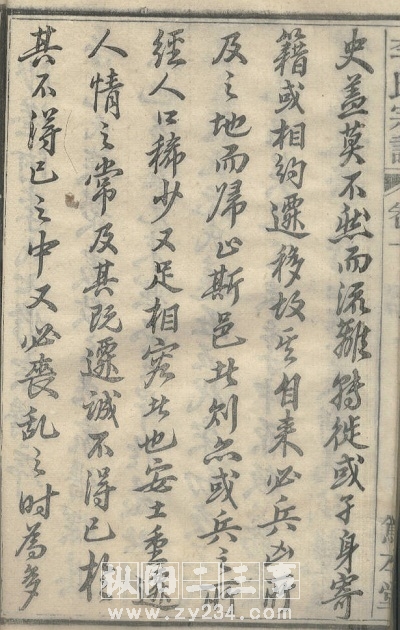 李氏宗譜
卷一
史蓋莫不然而流離轉徙或孑身寄
籍或相約遷移故其自来必兵凶所
及之地而歸止斯邑者則亦或兵之所
經人口稀少又足相容者也安土重遷
人情之常及其既遷誠不得已於
其不得已之中又必喪亂之時為多
www.zy234.com